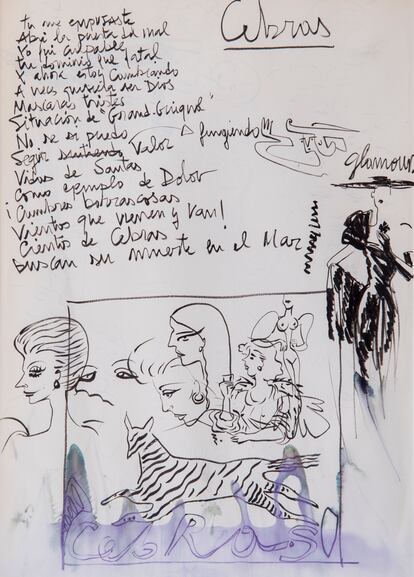 Cebras
Tu me empujaste
Abrí la puerta del mal
Yo fui culpable
Tu dominio fue fatal
Y ahora estoy cambiando
A veces quisiera ser Dios
Mascaras tristes
Situación de "Grand-Guignol"
No sé si puedo
Seguir sintiendo Valor fingiendo
Vidas de Santas
Como ejemplo de Dolor
¡Cumbres borrascosas
Vientos que vienen y Van!
Ciento de Cebras
buscan su muerte en el Mar
glamour
CebRaS